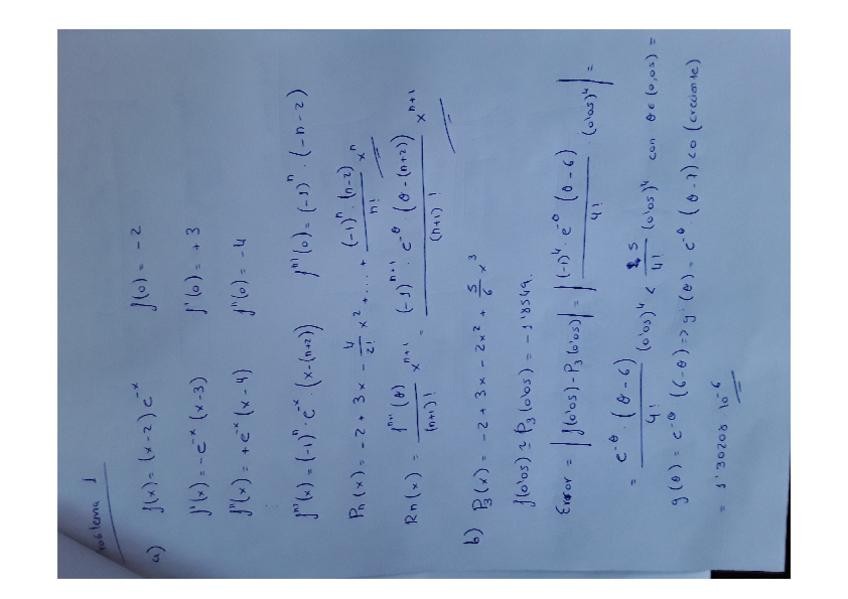 Problema 1
a) f(x) = (x-2) e^{-x}    f(0) = -2
f'(x) = -e^{-x} (x-3)    f'(0) = +3
f''(x) = +e^{-x} (x-4)    f''(0) = -4
f^{n)}(x) = (-1)^n · e^{-x} · (x-(n+2))    f^{n)}(0) = (-1)^n · (-n-2)
P_n(x) = -2 + 3x - \frac{4}{2!} x^2 + .... + \frac{(-1)^n · (n-2)}{n!} x^n
R_n(x) = \frac{f^{n+1}(θ)}{(n+1)!} x^{n+1} = \frac{(-1)^{n+1} · e^{-θ} · (θ-(n+2))}{(n+1)!} x^{n+1}
b) P_3(x) = -2 + 3x - 2x^2 + \frac{5}{6} x^3
f(0'05) ≃ P_3(0'05) = -1'8549.
Error = |f(0'05) - P_3(0'05)| = |\frac{(-1)^4 · e^{-θ} (θ-6)}{4!} · (0'05)^4| =
= \frac{e^{-θ} · (θ-6)}{4!} (0'05)^4 < \frac{5}{4!} (0'05)^4 con θ ∈ (0,05) =
g(θ) = e^{-θ} (6-θ) => g'(θ) = e^{-θ} · (θ-7) <0 (creciente)
= 1'30208 · 10^{-6}